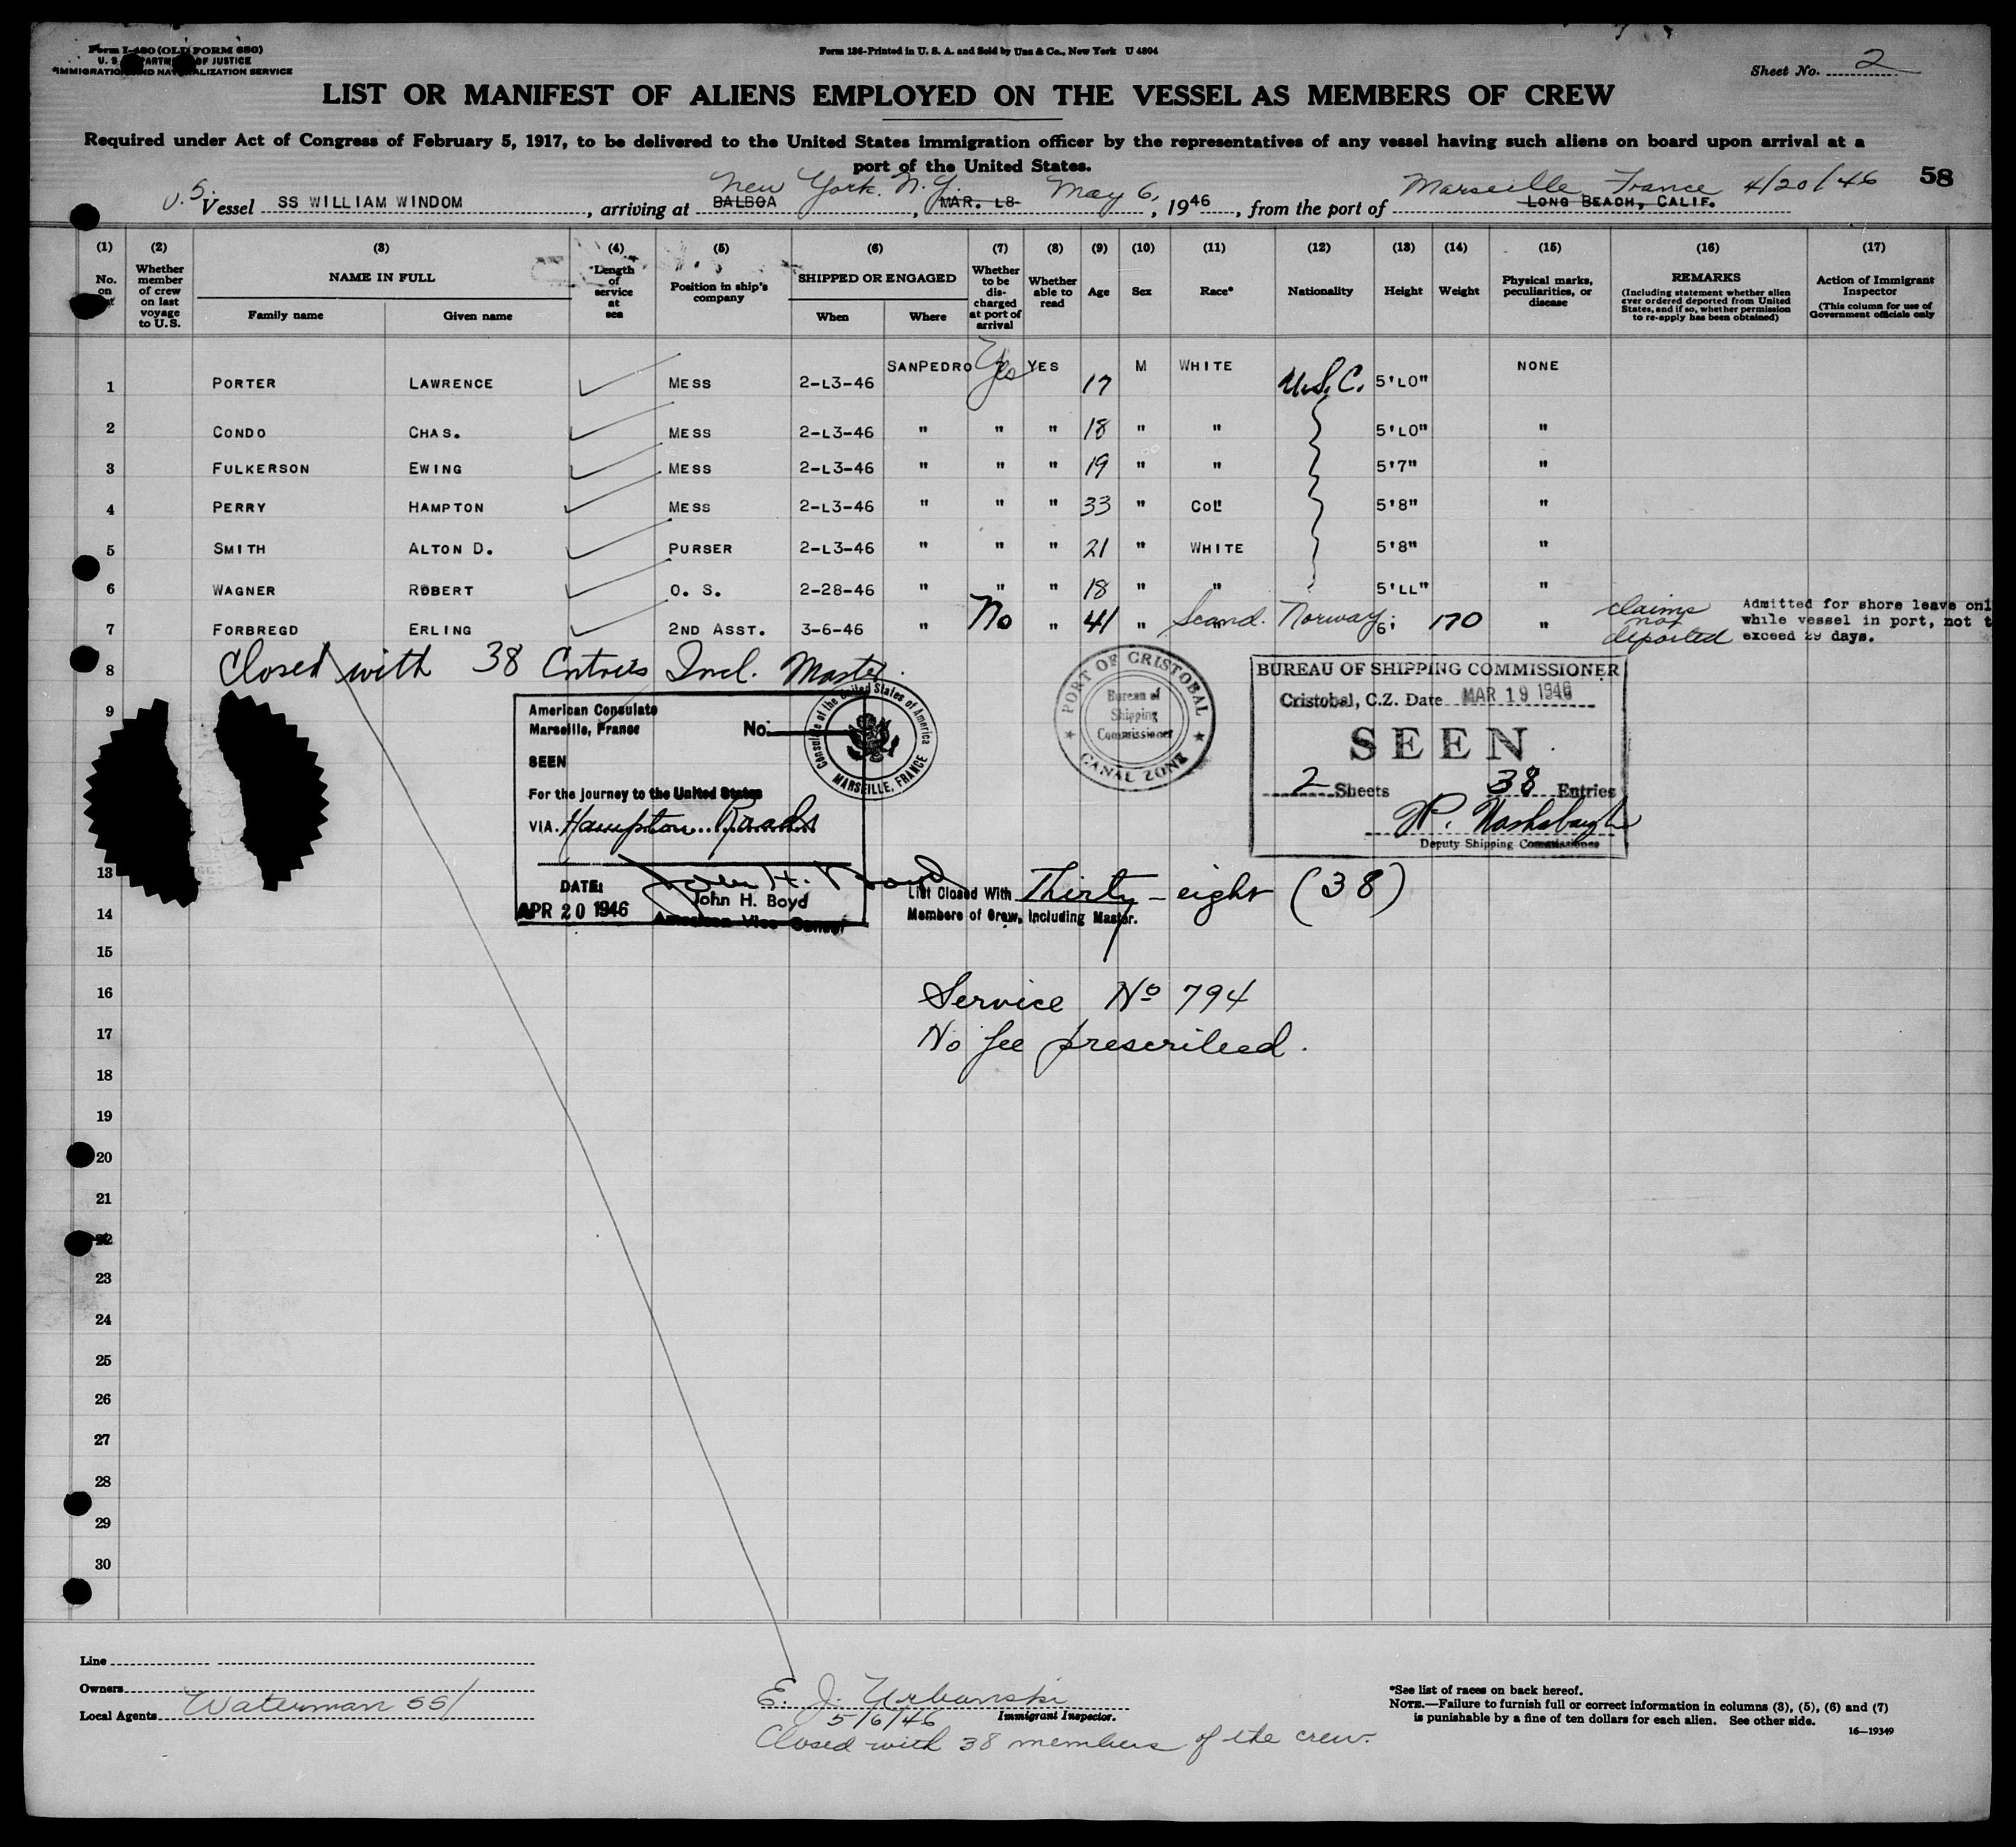 Form I-480 (OLD FORM 680)
U. S. DEPARTMENT OF JUSTICE
IMMIGRATION AND NATURALIZATION SERVICE
Form 186-Printed in U. S. A. and Sold by Unz & Co., New York U 4804
Sheet No. 2
LIST OR MANIFEST OF ALIENS EMPLOYED ON THE VESSEL AS MEMBERS OF CREW
Required under Act of Congress of February 5, 1917, to be delivered to the United States immigration officer by the representatives of any vessel having such aliens on board upon arrival at a
port of the United States.
58
New York. N.Y. May 6, Marseille, France 4/20/46
U.S. Vessel SS WILLIAM WINDOM, arriving at BALBOA, MAR. L8, 1946, from the port of LONG BEACH, CALIF.
(1) (2) (3) (4) (5) (6) (7) (8) (9) (10) (11) (12) (13) (14) (15) (16) (17)
No. on
Whether member of crew on last voyage to U.S.
NAME IN FULL
Family name Given name
Length of service at sea
Position in ship's company
SHIPPED OR ENGAGED
When Where
Whether to be discharged at port of arrival
Whether able to read
Age Sex Race* Nationality Height Weight
Physical marks, peculiarities, or disease
REMARKS
(Including statement whether alien ever ordered deported from United States, and if so, whether permission to re-apply has been obtained)
Action of Immigrant Inspector
(This column for use of Government officials only
1 PORTER LAWRENCE MESS 2-L3-46 SANPEDRO Yes YES 17 M WHITE U.S.C. 5'L0" NONE
2 CONDO CHAS. MESS 2-L3-46 " " " 18 " " 5'L0" "
3 FULKERSON EWING MESS 2-L3-46 " " " 19 " " 5'7" "
4 PERRY HAMPTON MESS 2-L3-46 " " " 33 " COL" 5'8" "
5 SMITH ALTON D. PURSER 2-L3-46 " " " 21 " WHITE 5'8" "
6 WAGNER ROBERT O. S. 2-28-46 " " " 18 " " 5'LL" "
7 FORBREGD ERLING 2ND ASST. 3-6-46 " No " 41 " Scand. Norway 6' 170 " claims not deported
Admitted for shore leave onl
while vessel in port, not t
exceed 29 days.
8 Closed with 38 Entries Incl. Master.
9
American Consulate
Marseille, France
No.
SEEN
For the journey to the United States
VIA. Hampton Roads
DATE:
APR 20 1946
John H. Boyd
John H. Boyd
American Vice Consul
Consulate of the United States of America
MARSEILLE, FRANCE
PORT OF CRISTOBAL
Bureau of
Shipping
Commissioner
CANAL ZONE
BUREAU OF SHIPPING COMMISSIONER
Cristobal, C.Z. Date MAR 19 1946
SEEN
2 Sheets 38 Entries
Deputy Shipping Commissioner
13
List Closed With Thirty-eight (38)
Members of Crew, Including Master.
14
15
16 Service No 794
17 No fee prescribed.
18
19
20
21
22
23
24
25
26
27
28
29
30
Line
Owners
Local Agents Waterman SS/
E. J. Urbanski
Immigrant Inspector.
5/6/46
Closed with 38 members of the crew.
*See list of races on back hereof.
NOTE.—Failure to furnish full or correct information in columns (3), (5), (6) and (7)
is punishable by a fine of ten dollars for each alien. See other side.
16—19349